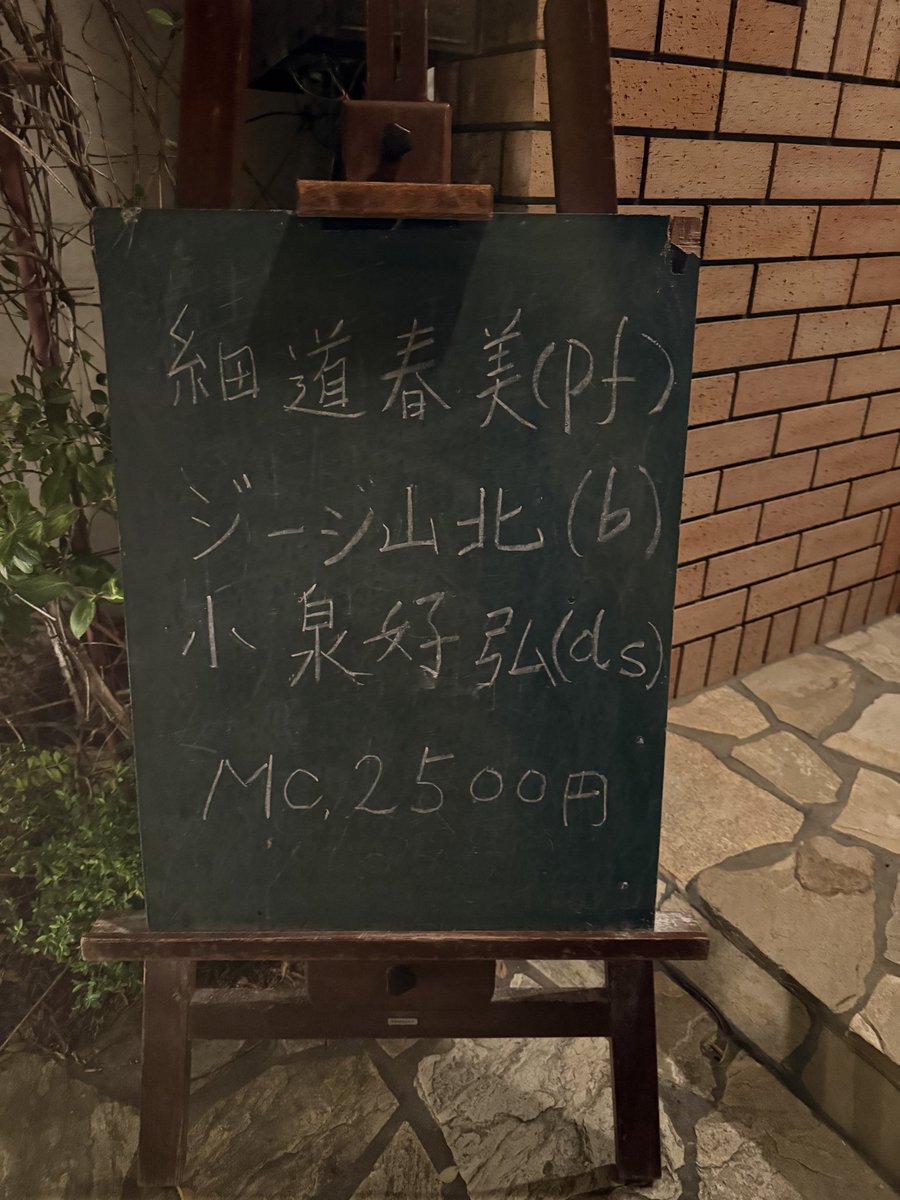 細道春美(pf)
ジージ山北(b)
小泉好弘(ds)
MC.2500円